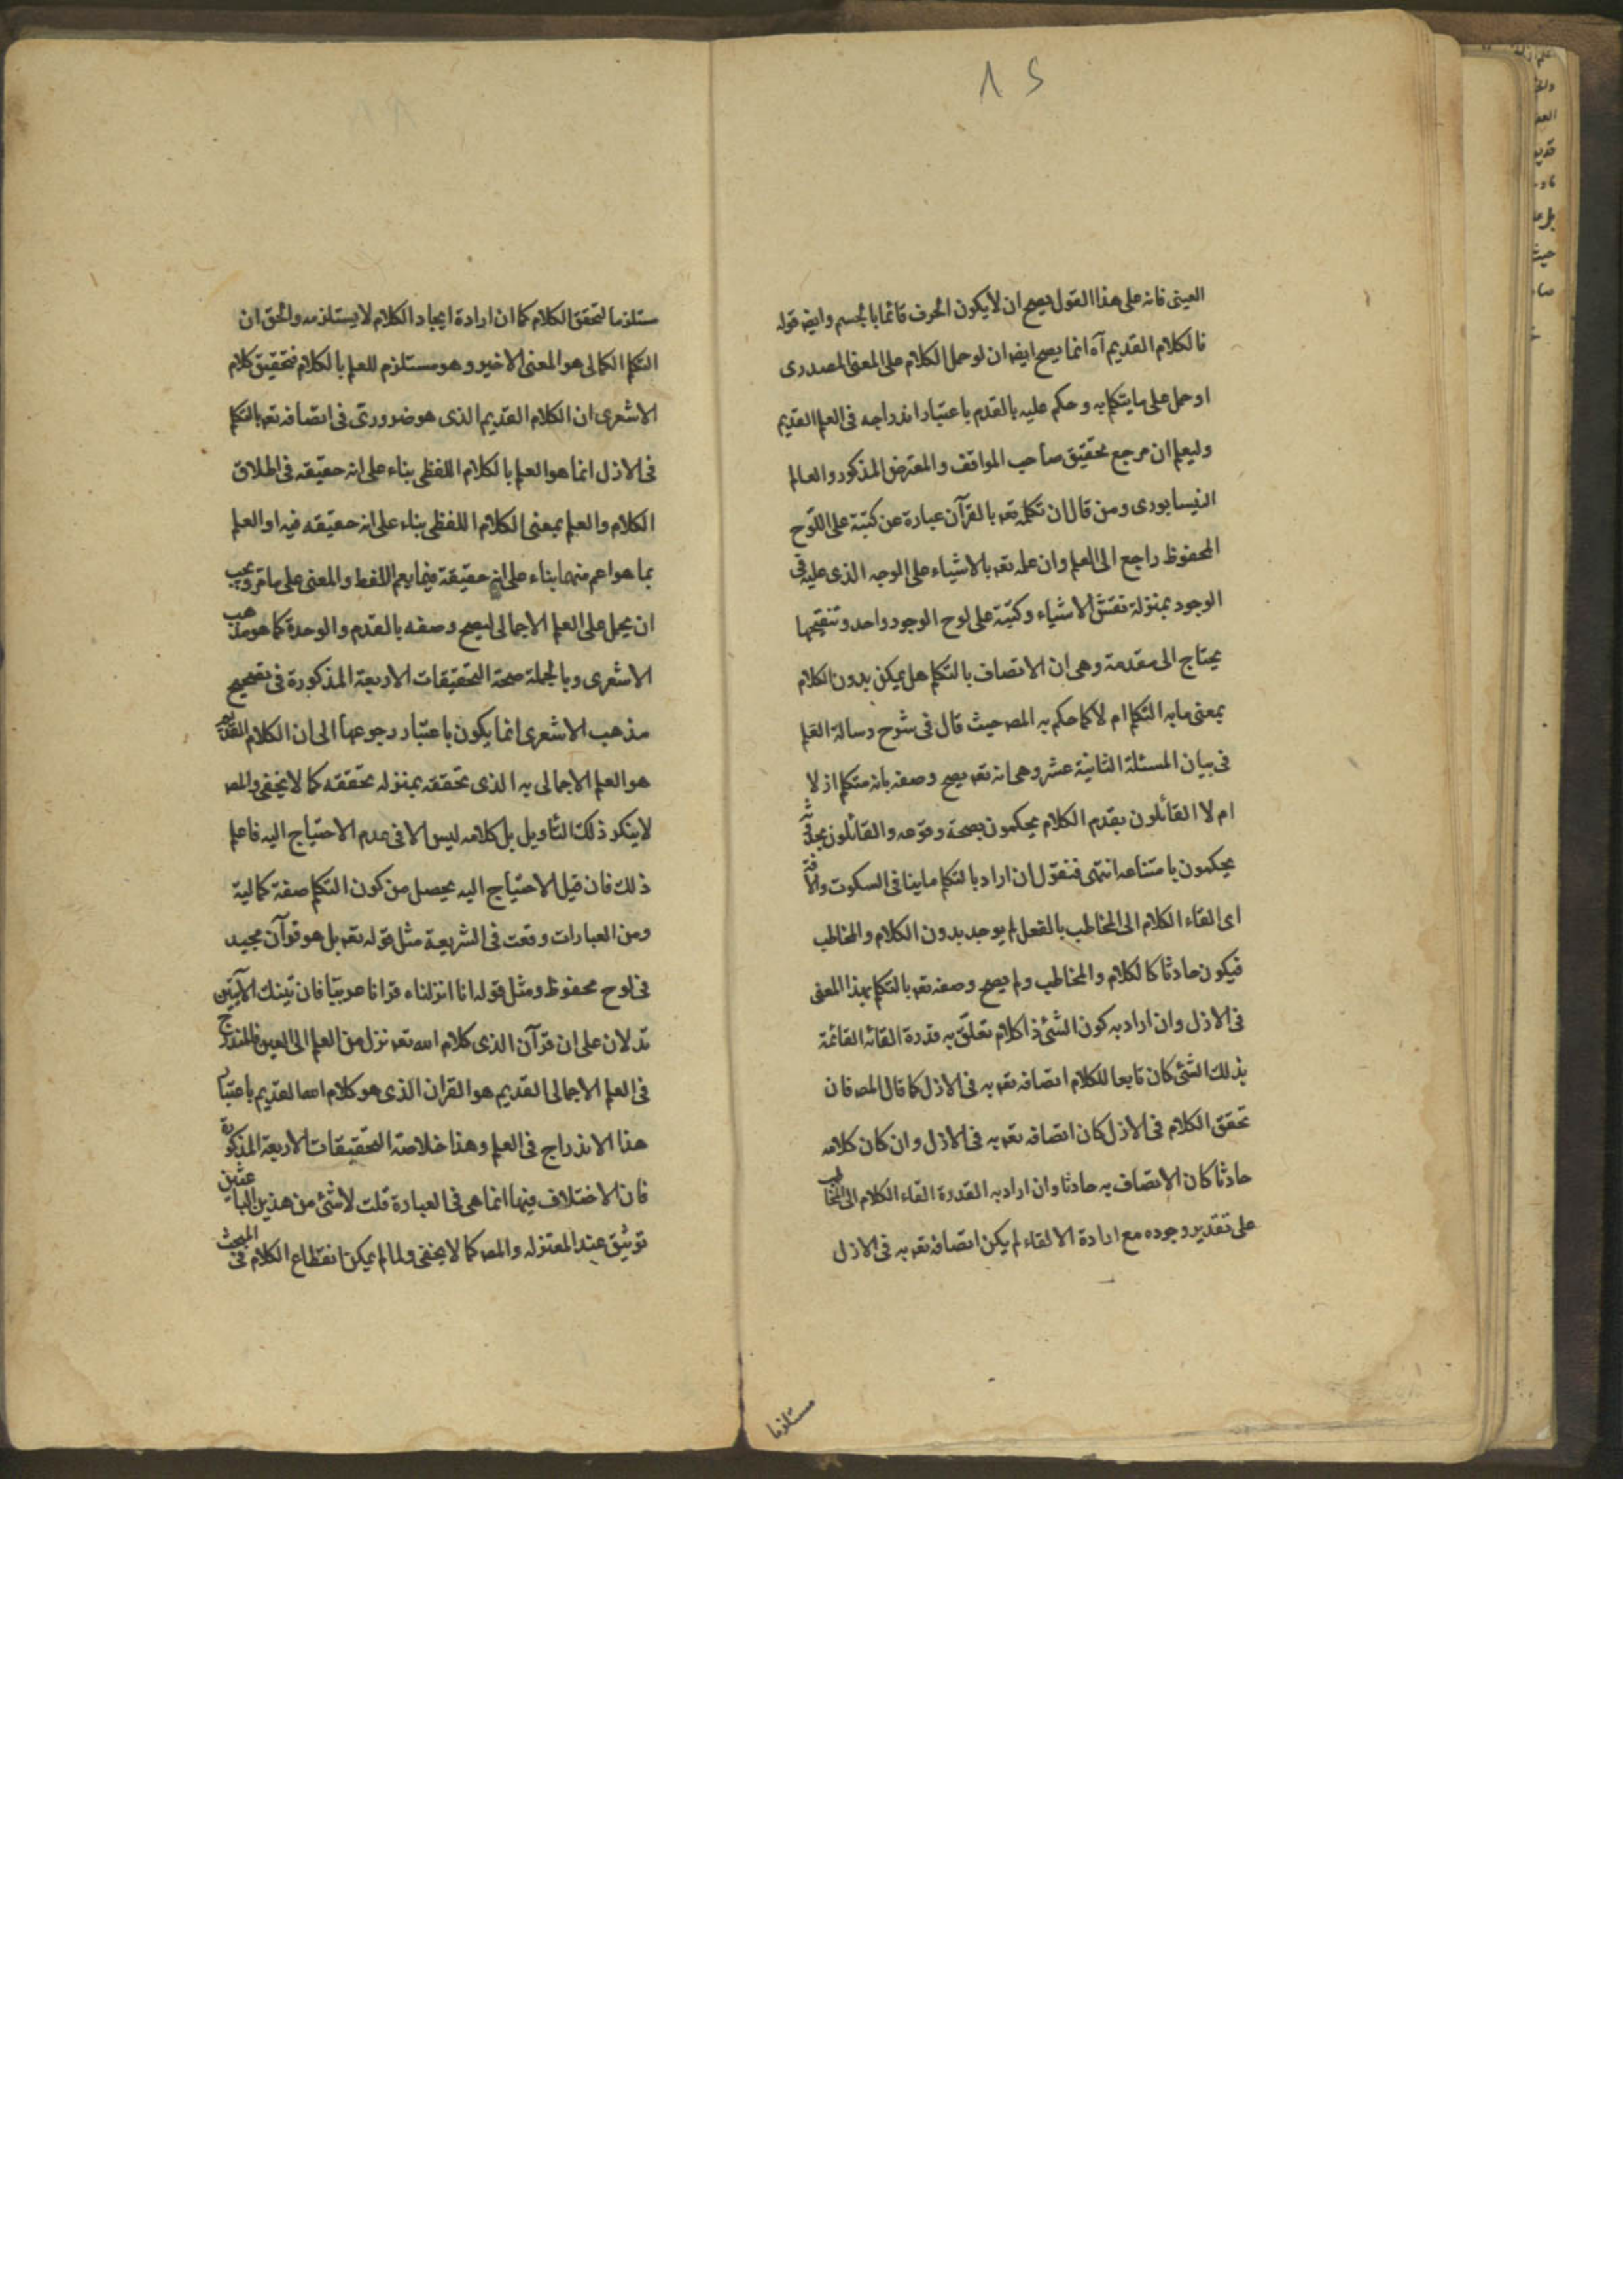 ١٢
العينى فانه على هذا القول يصح ان لا يكون الحرف قائما بالجسم وايض قوله
فالكلام القديم آه انما يصح ايض ان لو حمل الكلام على المعنى المصدرى
او حمل على ما يتكلم به وحكم عليه بالقدم باعتبار اندراجه فى العلم القديم
وليعلم ان مرجع تحقيق صاحب المواقف والمعترض المذكور والعالم
النيسابورى ومن قال ان تكلمه تعه بالقرآن عبارة عن كتبته على اللوح
المحفوظ راجع الى العلم وان علمه تعه بالاشياء على الوجه الذى عليه فى
الوجود بمنزلة نقش الاشياء وكتبته على لوح الوجود واحد وتنقيحها
يحتاج الى مقدمة وهى ان الاتصاف بالتكلم هل يمكن بدون الكلام
بمعنى ما به التكلم ام لا كما حكم به المص حيث قال فى شرح رسالة العلم
فى بيان المسئلة الثانية عشر وهى انه تعه يصح وصفه بانه متكلم ازلا
ام لا القائلون بقدم الكلام يحكمون بصحة وقوعه والقائلون بحدوثه
يحكمون بامتناعه انتهى فنقول ان اراد بالتكلم ما ينافى السكوت والآفة
اى القاء الكلام الى المخاطب بالفعل لم يوجد بدون الكلام والمخاطب
فيكون حادثا كالكلام والمخاطب ولم يصح وصفه تعه بالتكلم بهذا المعنى
فى الازل وان اراد به كون الشئ ذا كلام تعلق به قدرة القائه القائمة
بذلك الشئ كان تابعا للكلام اتصافه تعه به فى الازل كما قال المص فان
تحقق الكلام فى الازل كان اتصافه تعه به فى الازل وان كان كلامه
حادثا كان الاتصاف به حادثا وان اراد به القدرة القاء الكلام الى المخاطب
على تقدير وجوده مع ارادة الالقاء لم يكن اتصافه تعه به فى الازل
مستلزما
ستلزما لتحقق الكلام كما ان ارادة ايجاد الكلام لا يستلزمه والحق ان
التكلم الكمالى هو المعنى الاخير وهو مستلزم للعلم بالكلام فتحقيق كلام
الاشعرى ان الكلام القديم الذى هو ضرورى فى اتصافه تعه بالتكلم
فى الازل انما هو العلم بالكلام اللفظى بناء على انه حقيقه فى اطلاق
الكلام والعلم بمعنى الكلام اللفظى بناء على انه حقيقه فيه او العلم
بما هو اعم منهما بناء على انه حقيقة فيما يعم اللفظ والمعنى على ما مر ويجب
ان يحمل على العلم الاجمالى ليصح وصفه بالقدم والوحدة كما هو مذهب
الاشعرى وبالجملة صحة التحقيقات الاربعة المذكورة فى تصحيح
مذهب الاشعرى انما يكون باعتبار رجوعها الى ان الكلام القديم
هو العلم الاجمالى به الذى تحققه بمنزله تحققه كما لا يخفى والمص
لا ينكر ذلك التأويل بل كلامه ليس الا فى عدم الاحتياج اليه فاعلم
ذلك فان قيل الاحتياج اليه يحصل من كون التكلم صفة كمالية
ومن العبارات وقعت فى الشريعة مثل قوله تعه بل هو قرآن مجيد
فى لوح محفوظ ومثل قوله انا انزلناه قرانا عربيا فان تينك الآيتين
تدلان على ان قرآن الذى كلام الله تعه نزل من العلم الى العين فالمندرج
فى العلم الاجمالى القديم هو القران الذى هو كلام الله القديم باعتبار
هذا الاندراج فى العلم وهذا خلاصة التحقيقات الاربعة المذكورة
فان الاختلاف فيها انما هى فى العبارة قلت لا شئ من هذين الباعثين
توثيق عند المعتزله والمص كما لا يخفى ولما لم يمكن انقطاع الكلام فى المبحث